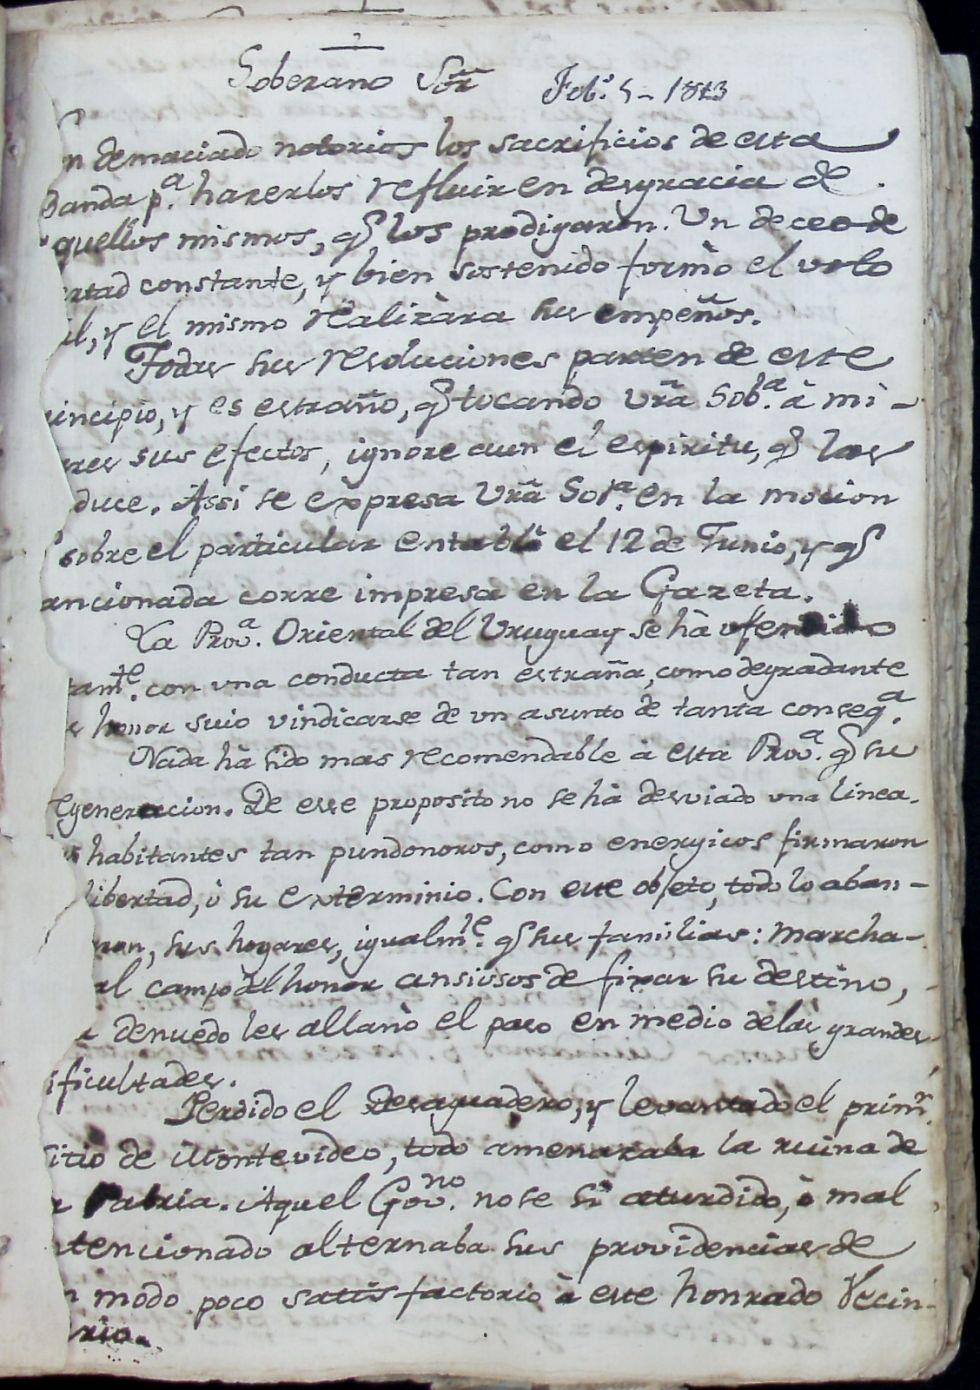 Soberano Sõr Feb.º 5 - 1813
n demaciado notorios los sacrificios de esta
Banda p.ª hazerlos refluir en desgracia de
quellos mismos, q.e los prodigaron. Un deceo de
rtad constante, y bien sostenido formò el voto
il, y el mismo realizàra sus empeños.
Todas sus resoluciones parten de este
incipio, y es estraño, q.e tocando Vrã Sob.ª à mi-
res sus efectos, ignore aun el espiritu, q.e las
duce. Assi se expresa Vrã Sob.ª en la mocion
sobre el particular entablò el 12 de Junio, y q.e
ancionada corre impresa en la Gazeta.
La Prov.ª Oriental del Uruguay se hà ofendido
tam.te con una conducta tan estraña, como degradante
s honor suio vindicarse de un asunto de tanta conseq.ª
Nada hà sido mas recomendable à esta Prov.ª q.e su
egeneracion. De esse proposito no se hà desviado una linea.
s habitantes tan pundonoros, como energicos firmaron
libertad, ò su exterminio. Con este objeto, todo lo aban-
ron, sus hogares, igualm.te q.e sus familias: marcha-
al campo del honor ansiosos de fixar su destino,
denuedo les allanò el paso en medio de làs grandes
ificultades.
Perdido el desaguadero, y levantado el primr.
itio de Montevideo, todo amenazaba la ruina de
a Patria. Aquel Gov.no no se si aturdido, ò mal
ntencionado alternaba sus providencias de
n modo poco satisfactorio à este honrado Vecin-
rio.